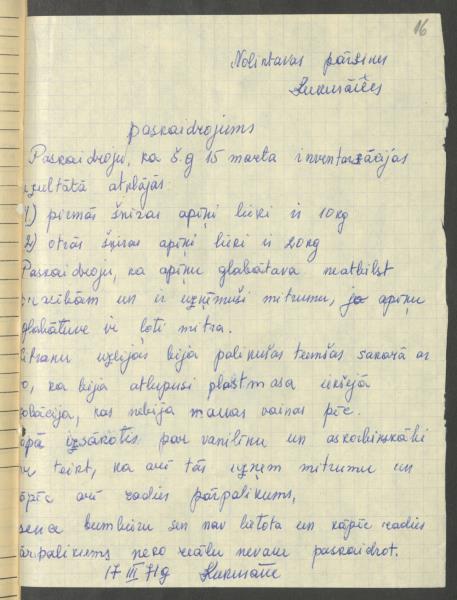 16
Noliktavas pārzines
Kukurāītes
paskaidrojums
Paskaidroju, ka š.g 15 marta inventarzācijas
ezultātā atklājās
1) pirmās šķiras apiņi lieki ir 10 kg
2) otrās šķiras apiņi lieki ir 20 kg
Paskaidroju, ka apiņu glabātava neatbilst
un ir uzņēmuši mitrumu, jo apiņu
glabātuve ir ļoti mitra.
uzlējās bija palikušas tumšas sakarā ar
o, ka bija atlupusi plastmasa iekšējā
zolācija, kas nebija manas vainas pēc.
āpā izsākotis par vanilīnu un askorbinskābi
teikt, ka arī tās uzņem mitrumu un
āpēc arī radies pārpalikums,
bumbieru sen nav lietota un kāpēc radies
ārpalikums neko reālu nevaru paskaidrot.
17 III 71g